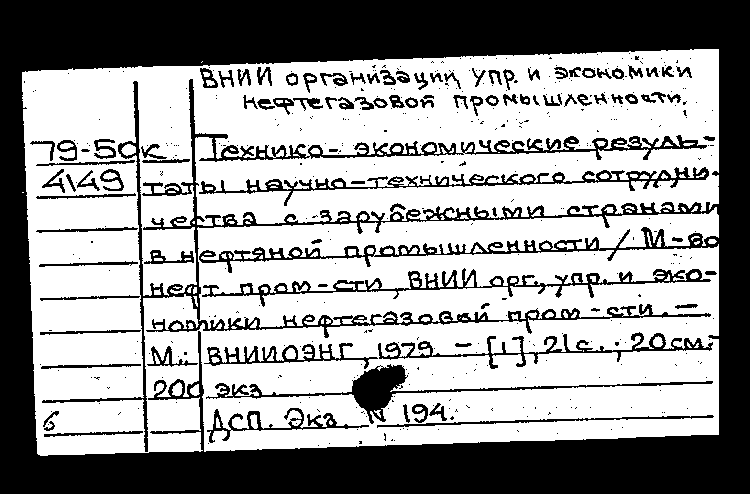 ВНИИ организации, упр. и экономики
нефтегазовой промышленности.
79-50к Технико-экономические резуль-
4149 таты научно-технического сотрудни-
чества с зарубежными странами
в нефтяной промышленности / М-во
нефт. пром-сти, ВНИИ орг., упр. и эко-
номики нефтегазовой пром-сти. —
М.: ВНИИОЭНГ, 1979. - [1], 21 с.; 20 см.-
200 экз.
б ДСП. Экз. N 194.